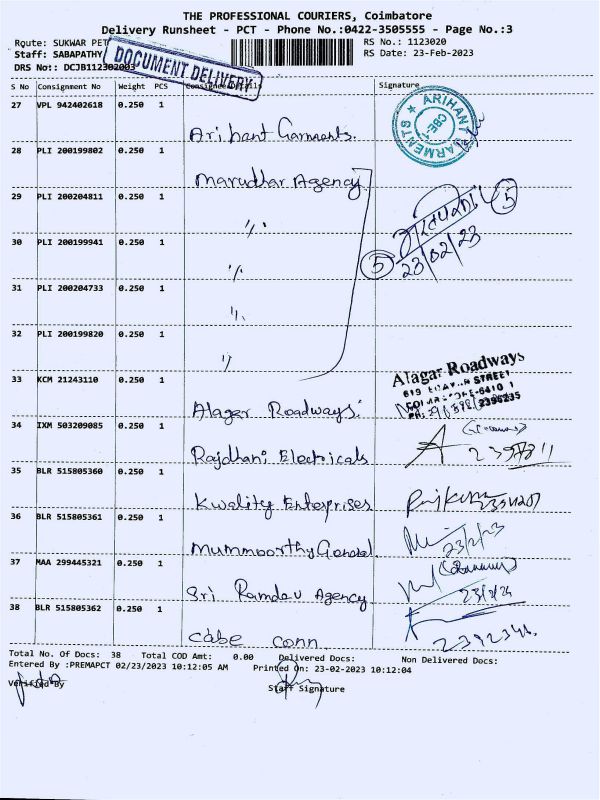 THE PROFESSIONAL COURIERS, Coimbatore
Delivery Runsheet - PCT - Phone No.:0422-3505555 - Page No.:3
Route: SUKWAR PET
RS No.: 1123020
Staff: SABAPATHY
RS Date: 23-Feb-2023
DRS No:: DCJB112302003
DOCUMENT DELIVERY
S No Consignment No Weight PCS Consignee Details Signature
27 VPL 942402618 0.250 1
Arihant Garments.
ARIHANT GARMENTS
28 PLI 200199802 0.250 1
Marudhar Agency
29 PLI 200204811 0.250 1
"
5
30 PLI 200199941 0.250 1
"
5
23/02/23
31 PLI 200204733 0.250 1
"
32 PLI 200199820 0.250 1
"
33 KCM 21243110 0.250 1
Alagar Roadways
Alagar Roadways
619
STREET
34 IXM 503209085 0.250 1
Rajdhani Electricals
35 BLR 515805360 0.250 1
Kwality Enterprises
36 BLR 515805361 0.250 1
Mummoorthy General
23/2/23
37 MAA 299445321 0.250 1
Sri Ramdev Agency
38 BLR 515805362 0.250 1
Cabe Conn
Total No. Of Docs: 38 Total COD Amt: 0.00 Delivered Docs: Non Delivered Docs:
Entered By :PREMAPCT 02/23/2023 10:12:05 AM Printed On: 23-02-2023 10:12:04
Verified By Staff Signature